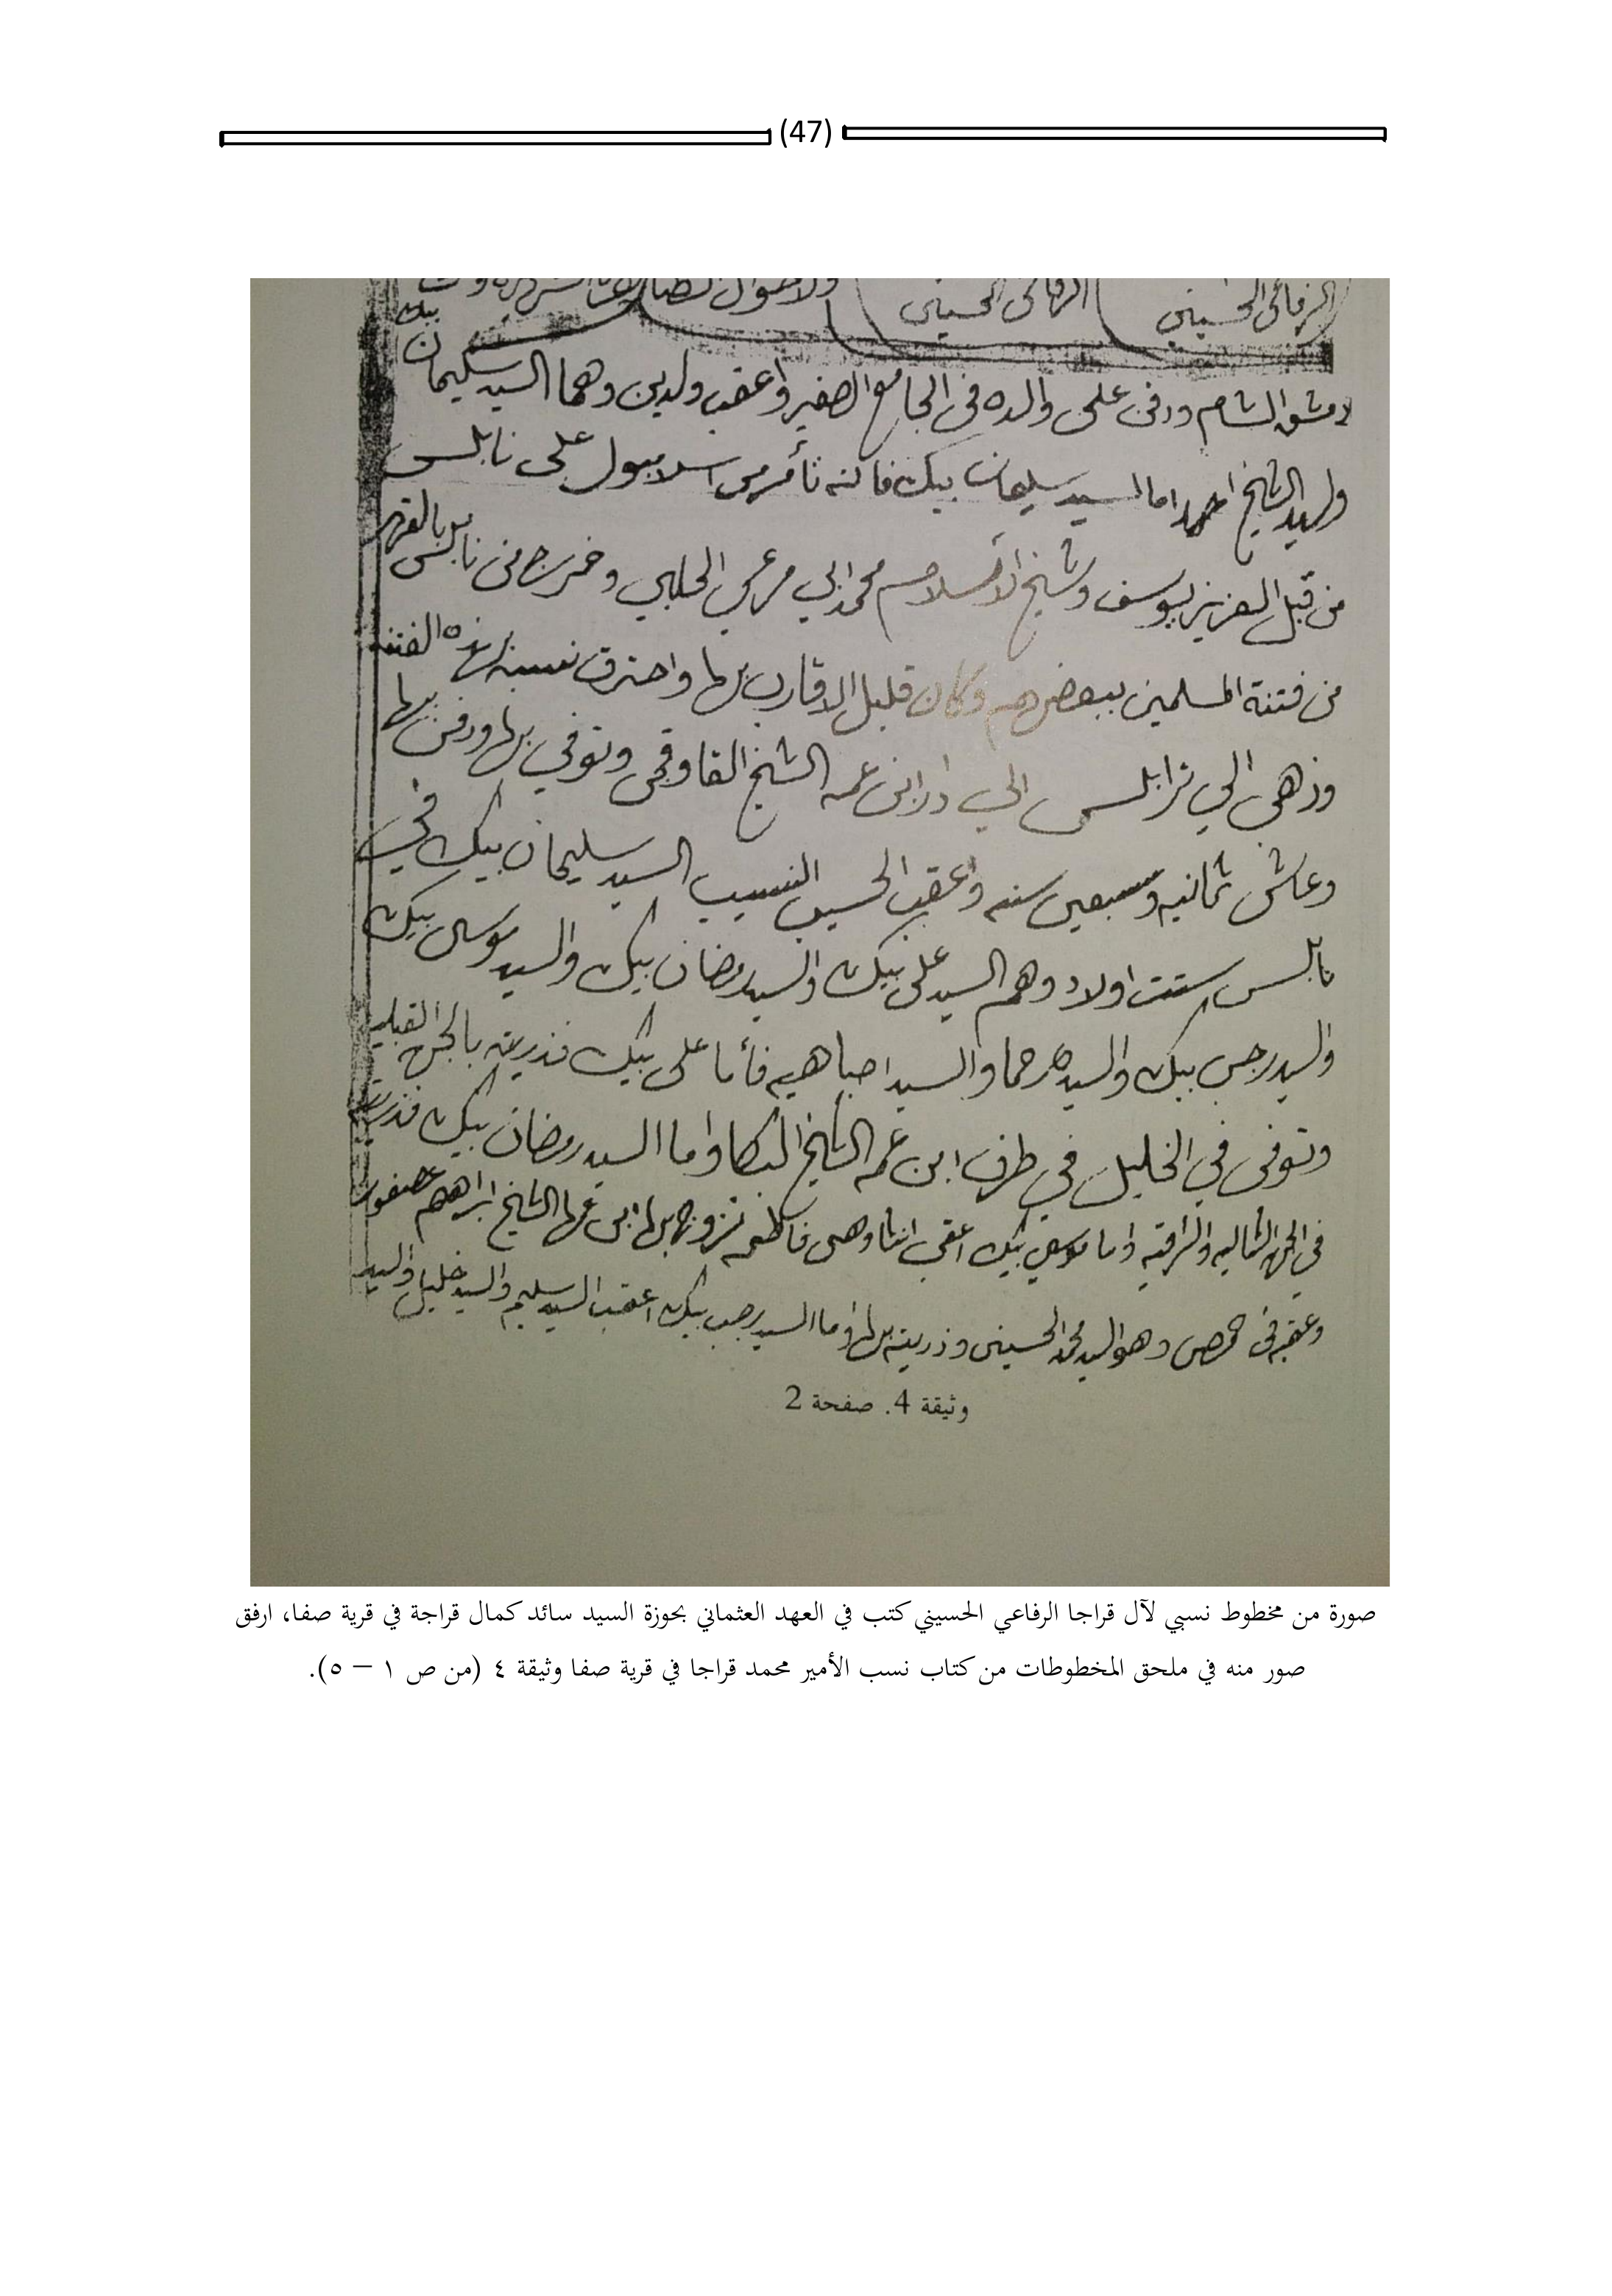 (47)
الرفاعي الحسيني الرفاعي الحسيني
دمشق الشام ودفن على والده في الجامع الصغير واعقب ولدين وهما السيد سليمان بيك
والسيد الشيخ احمد اما السيد سليمان بيك فانه تأمر من اسلامبول على نابلس
من قبل العزيز يوسف وشيخ الاسلام محمد ابي مرعي الحلبي وخرج من نابلس بالقهر
من فتنة المسلمين ببعضهم وكان قليل الاقارب بها واحترق نسبه بهذه الفتنه
وذهب الي ترابلس الي دار ابن عمه الشيخ القاوقجي وتوفي بها ودفن بها
وعاش ثمانيه وسبعين سنه واعقب الحسيب النسيب السيد سليمان بيك في
نابلس ستت اولاد وهم السيد علي بيك والسيد رمضان بيك والسيد موسى بيك
والسيد رجب بيك والسيد والسيد فأما على بيك فذريته بالجهه القبليه
وتوفى في الخليل في طرف ابن عمه الشيخ البكا واما السيد رمضان بيك فذريته
في الجهه الشماليه والشرقيه واما موسي بيك اعقب انثا وهى فاطمه تزوج بها ابن عمها الشيخ ابراهيم عصفور
وعقبه في حمص وهو السيد محمد الحسيني وذريته بها واما السيد رجب بيك اعقب السيد سليم والسيد خليل والسيد
وثيقة 4. صفحة 2
صورة من مخطوط نسبي لآل قراجا الرفاعي الحسيني كتب في العهد العثماني بحوزة السيد سائد كمال قراجة في قرية صفا، ارفق
صور منه في ملحق المخطوطات من كتاب نسب الأمير محمد قراجا في قرية صفا وثيقة ٤ (من ص ١ – ٥).